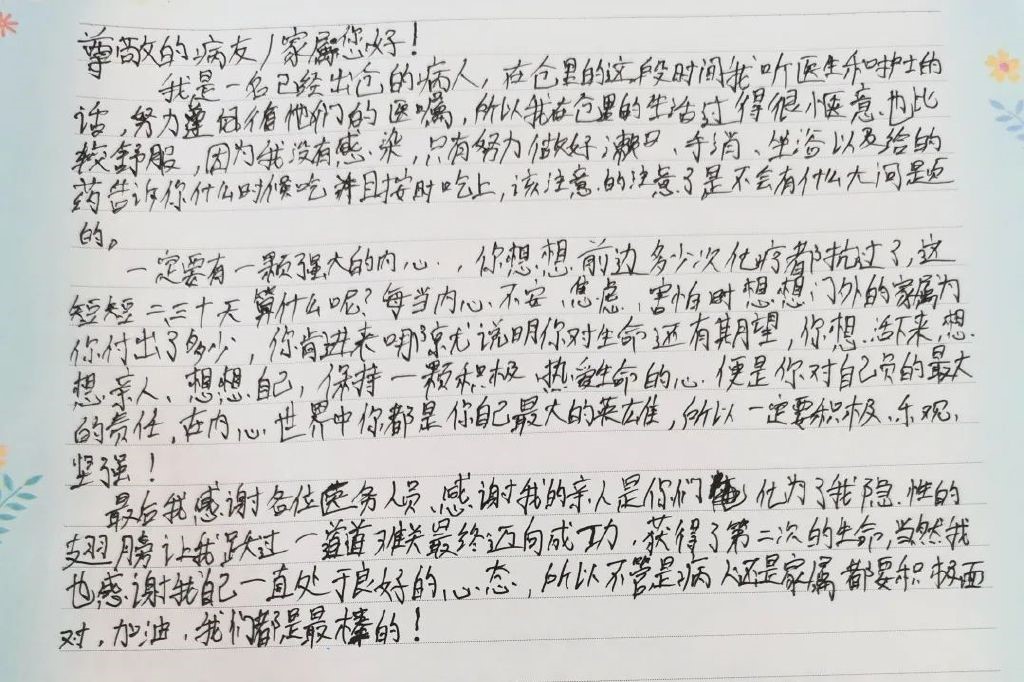 尊敬的病友/家属您好!
我是一名已经出仓的病人,在仓里的这段时间我听医生和护士的
话,努力遵循他们的医嘱,所以我在仓里的生活过得很惬意也比
较舒服,因为我没有感染,只有努力做好漱口、手消、坐浴以及给的
药告诉你什么时候吃并且按时吃上,该注意的注意了是不会有什么大问题
的。
一定要有一颗强大的内心,你想想前边多少次化疗都抗过了,这
短短二三十天算什么呢?每当内心不安、焦虑、害怕时想想门外的家属为
你付出了多少,你肯进来咱就说明你对生命还有期望,你想活下来,想
想亲人、想想自己,保持一颗积极、热爱生命的心便是你对自己负的最大
的责任,在内心世界中你都是你自己最大的英雄,所以一定要积极、乐观、
坚强!
最后我感谢各位医务人员、感谢我的亲人是你们化为了我隐性的
翅膀让我跃过一道道难关最终迈向成功,获得了第二次的生命,当然我
也感谢我自己一直处于良好的心态,所以不管是病人还是家属都要积极面
对,加油,我们都是最棒的!